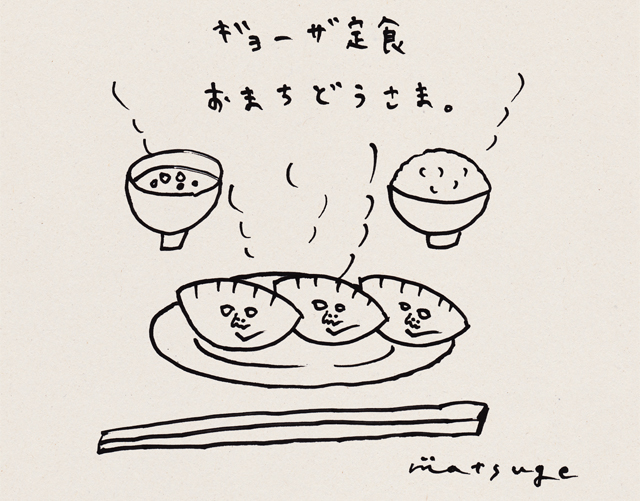 ギョーザ定食
おまちどうさま。
matsuge